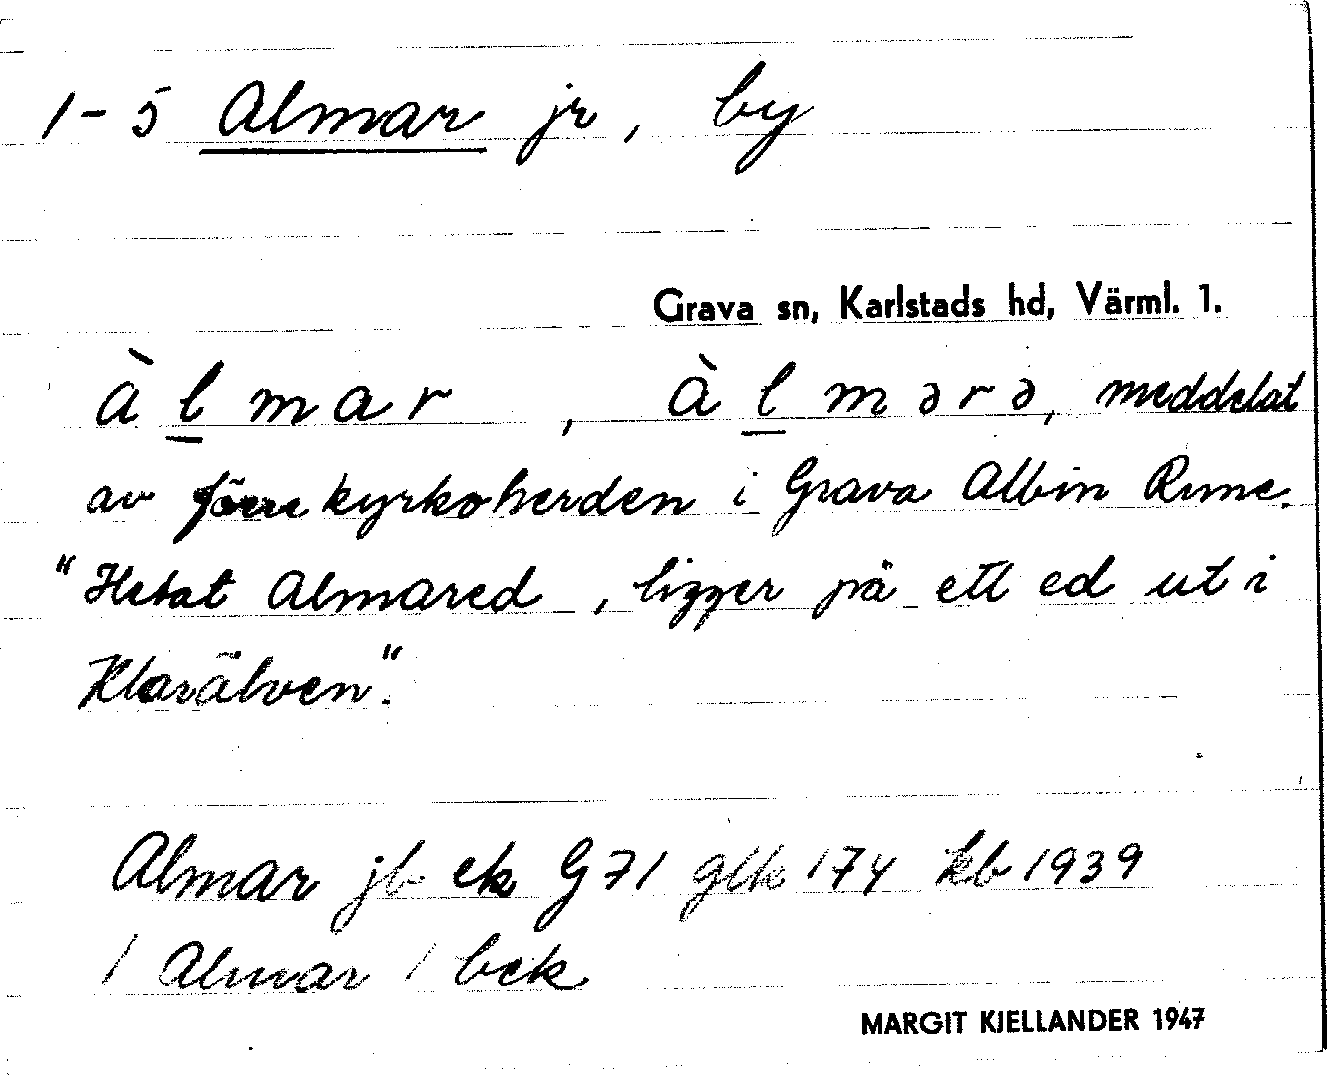 1-5 Almar jr, by
Grava sn, Karlstads hd, Värml. 1.
àl̲mar, àl̲mərə, meddelat
av förre kyrkoherden i Grava Albin Rune.
"Hetat Almared, ligger på ett ed ut i
Klarälven".
Almar jb ek G71 glk 174 kb 1939
/ Almar / bek
MARGIT KJELLANDER 1947